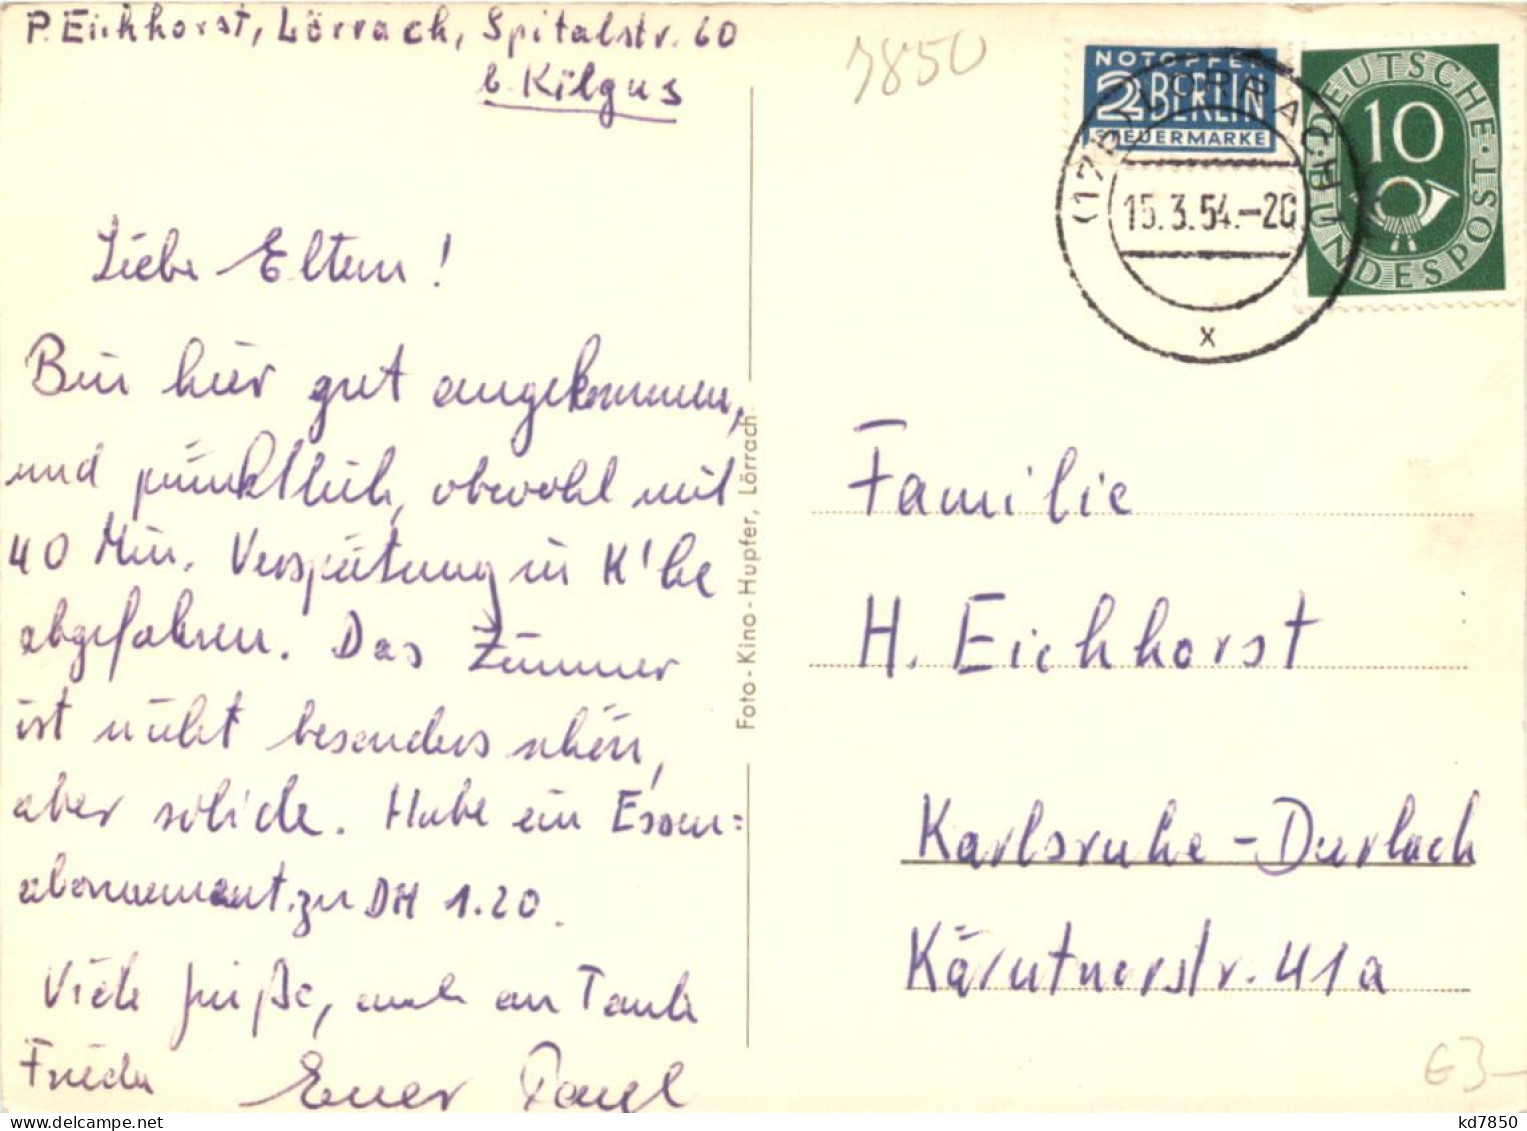 P. Eichhorst, Lörrach, Spitalstr. 60
b. Kilgus
Liebe Eltern!
Bin hier gut angekommen,
und pünktlich, obwohl mit
40 Min. Verspätung in K'he
abgefahren. Das Zimmer
ist nicht besonders schön,
aber solide. Habe ein Essen=
abonnement zu DM 1.20.
Viele Grüße, auch an Tante
Frieda Euer Paul
Foto-Kino-Hupfer, Lörrach
7850
NOTOPFER
2 BERLIN
STEUERMARKE
(17b) LÖRRACH
15.3.54.-20
x
DEUTSCHE·POST
10
BUNDESPOST
Familie
H. Eichhorst
Karlsruhe-Durlach
Kärntnerstr. 41a
G3-
kd7850